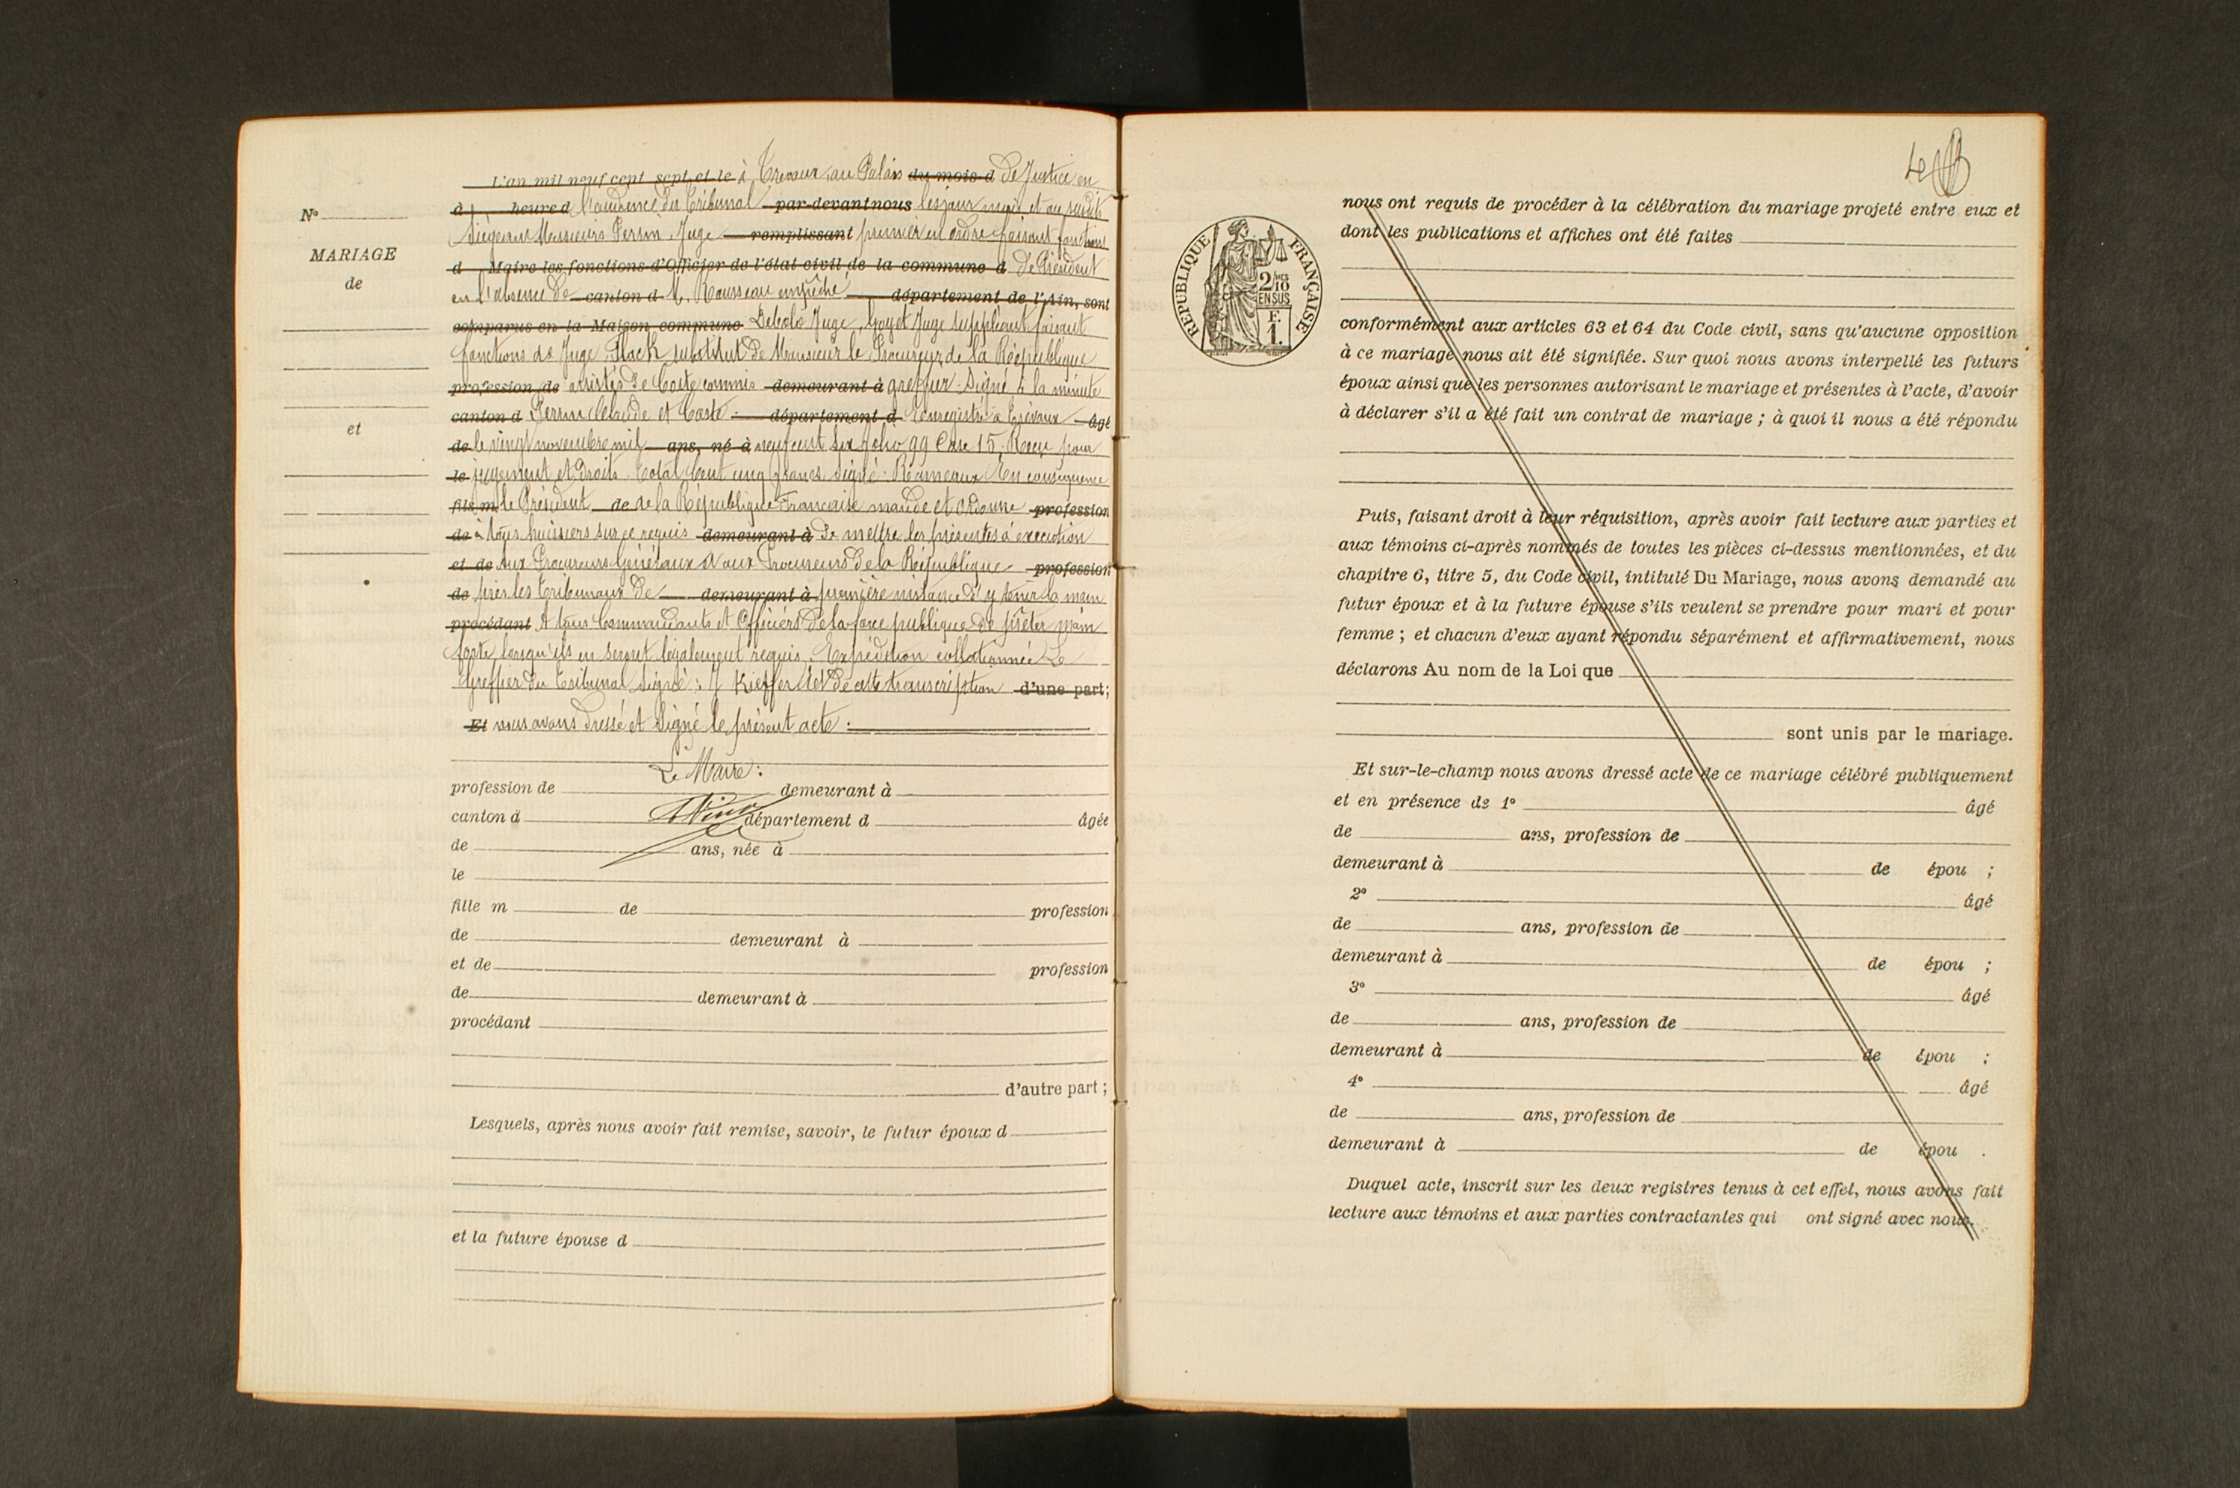 N°
MARIAGE
de
et
L'an mil neuf cent sept et le à Trévoux au Palais du mois d de Justice en
à heure d l'audience du Tribunal par-devant nous les jour mois et an susdits
Siégeant Messieurs Perrin Juge remplissant premier en ordre faisant fonctions
d Maire les fonctions d'Officier de l'état civil de la commune d de Président
en l'absence de canton d M. Rousseau empêché département de l'Ain, sont
comparus en la Maison commune Juge, Goyet Juge suppléant faisant
fonctions de Juge, substitut de Monsieur le Procureur de la République
profession de assistés de Coste commis demeurant à greffier. Signé à la minute
canton d Perrin et Coste. département d Enregistré à Trévoux âgé
de le vingt novembre mil ans, né à neuf cent six folio 99 Case 15. Reçu pour
le jugement et droits Total cent cinq francs signé: Rameaux En conséquence
fils m le Président de de la République Française mande et ordonne profession
de à tous huissiers sur ce requis demeurant à de mettre les présentes à exécution
et de Aux Procureurs Généraux et aux Procureurs de la République profession
de près les Tribunaux de demeurant à première instance d'y tenir la main
procédant A tous Commandants et Officiers de la force publique de prêter main
forte lorsqu'ils en seront légalement requis. Expédition collationnée Le
Greffier du Tribunal signé: J Kieffer de cette transcription d'une part;
Et nous avons dressé et signé le présent acte:
Le Maire:
profession de demeurant à
canton d département d âgée
de ans, née à
le
fille m de profession
de demeurant à
et de profession
de demeurant à
procédant
d'autre part;
Lesquels, après nous avoir fait remise, savoir, le futur époux d
et la future épouse d
RÉPUBLIQUE FRANÇAISE
2/10
EN SUS
F.
1.
nous ont requis de procéder à la célébration du mariage projeté entre eux et
dont les publications et affiches ont été faites
conformément aux articles 63 et 64 du Code civil, sans qu'aucune opposition
à ce mariage nous ait été signifiée. Sur quoi nous avons interpellé les futurs
époux ainsi que les personnes autorisant le mariage et présentes à l'acte, d'avoir
à déclarer s'il a été fait un contrat de mariage; à quoi il nous a été répondu
Puis, faisant droit à leur réquisition, après avoir fait lecture aux parties et
aux témoins ci-après nommés de toutes les pièces ci-dessus mentionnées, et du
chapitre 6, titre 5, du Code civil, intitulé Du Mariage, nous avons demandé au
futur époux et à la future épouse s'ils veulent se prendre pour mari et pour
femme; et chacun d'eux ayant répondu séparément et affirmativement, nous
déclarons Au nom de la Loi que
sont unis par le mariage.
Et sur-le-champ nous avons dressé acte de ce mariage célébré publiquement
et en présence de 1° âgé
de ans, profession de
demeurant à de épou ;
2° âgé
de ans, profession de
demeurant à de épou ;
3° âgé
de ans, profession de
demeurant à de épou ;
4° âgé
de ans, profession de
demeurant à de épou .
Duquel acte, inscrit sur les deux registres tenus à cet effet, nous avons fait
lecture aux témoins et aux parties contractantes qui ont signé avec nous.